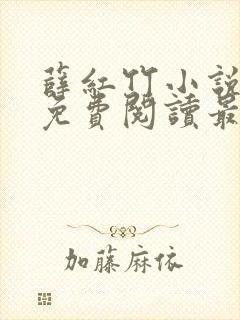 薛紅竹小說
免費閱讀最
加藤麻依